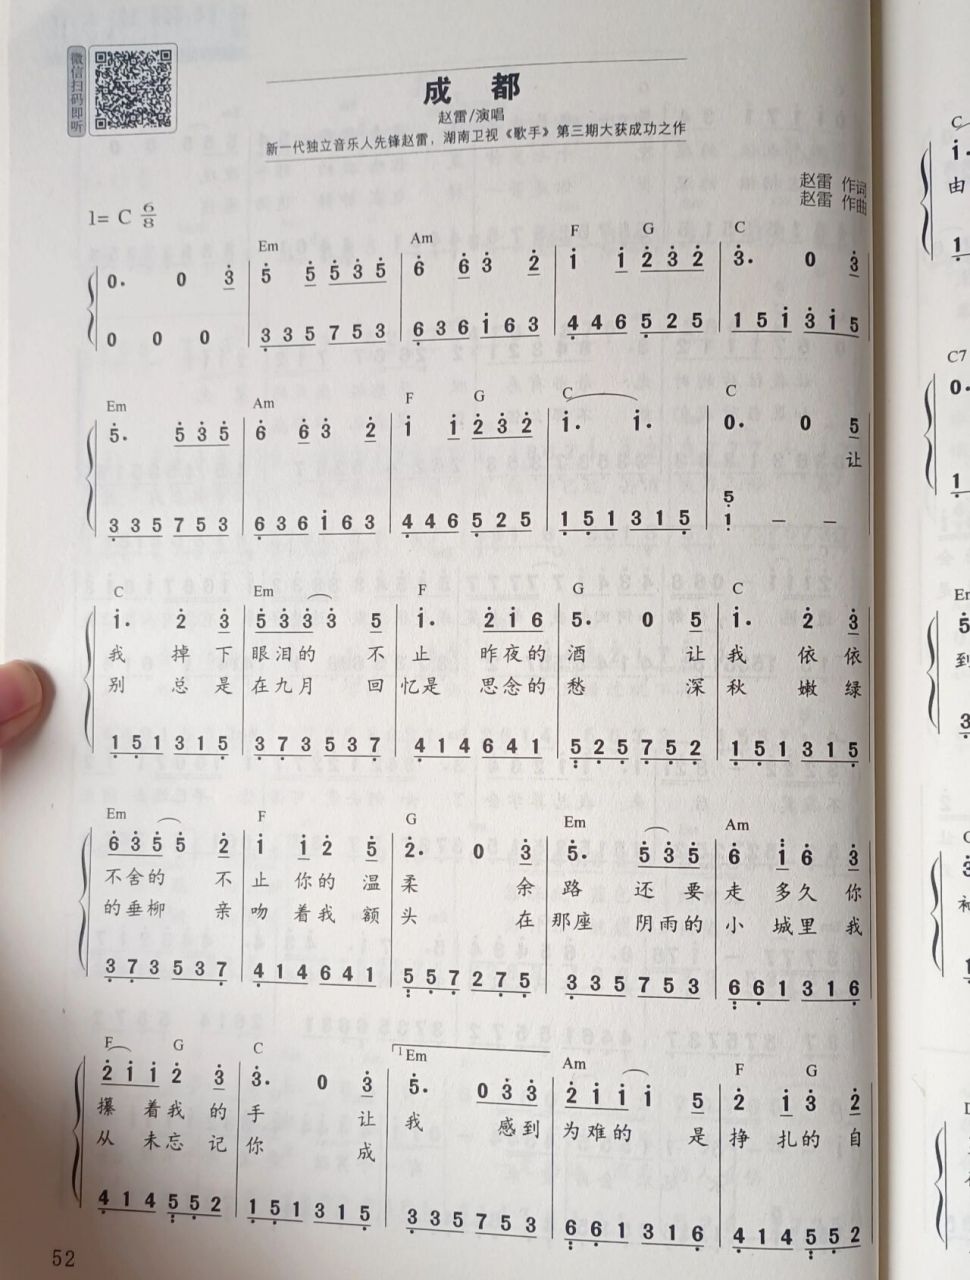 微信扫码即听
成 都
赵雷/演唱
新一代独立音乐人先锋赵雷，湖南卫视《歌手》第三期大获成功之作
赵雷 作词
赵雷 作曲
1= C 6/8
Em Am F G C
0· 0 3 5 5 5 3 5 6 6 3 2 1 1 2 3 2 3· 0 3
0 0 0 3 3 5 7 5 3 6 3 6 1 6 3 4 4 6 5 2 5 1 5 1 3 1 5
Em Am F G C C
5· 5 3 5 6 6 3 2 1 1 2 3 2 1· 1· 0· 0 5
让
3 3 5 7 5 3 6 3 6 1 6 3 4 4 6 5 2 5 1 5 1 3 1 5 5 1 – –
C Em F G C
1· 2 3 5 3 3 3 5 1· 2 1 6 5· 0 5 1· 2 3
我 掉 下 眼泪的 不 止 昨夜的 酒 让 我 依 依
别 总 是 在九月 回 忆是 思念的 愁 深 秋 嫩 绿
1 5 1 3 1 5 3 7 3 5 3 7 4 1 4 6 4 1 5 2 5 7 5 2 1 5 1 3 1 5
Em F G Em Am
6 3 5 5 2 1 1 2 5 2· 0 3 5· 5 3 5 6 1 6 3
不舍的 不 止 你的 温 柔 余 路 还 要 走 多久 你
的垂柳 亲 吻 着我 额 头 在 那座 阴雨的 小 城里 我
3 7 3 5 3 7 4 1 4 6 4 1 5 5 7 2 7 5 3 3 5 7 5 3 6 6 1 3 1 6
F G C 1 Em Am F G
2 1 1 2 3 3· 0 3 5· 0 3 3 2 1 1 1 5 2 1 3 2
攥 着我 的 手 让 我 感到 为难的 是 挣 扎的 自
从 未忘 记 你 成
4 1 4 5 5 2 1 5 1 3 1 5 3 3 5 7 5 3 6 6 1 3 1 6 4 1 4 5 5 2
52
C
1·
由
1
C7
0·
1
Em
5
到
3